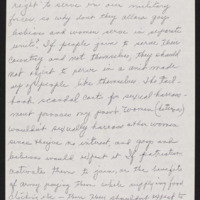 right to serve in our military
forces so why don't they allow gays
lesbians and women serve in separate
units? If people gains to serve their
country and not themselves, they should
not object to serve in a unit made
up of people like themselves. The Tail-
hook scandal costs for sexual harass-
ment process may prove women
wouldn't sexually harass other women
since they're as entrust, and gays and
lesbians would expect it. If patriotism
motivates them to give, or the benefits
of money paying them while supplying food
then they shouldn't object to